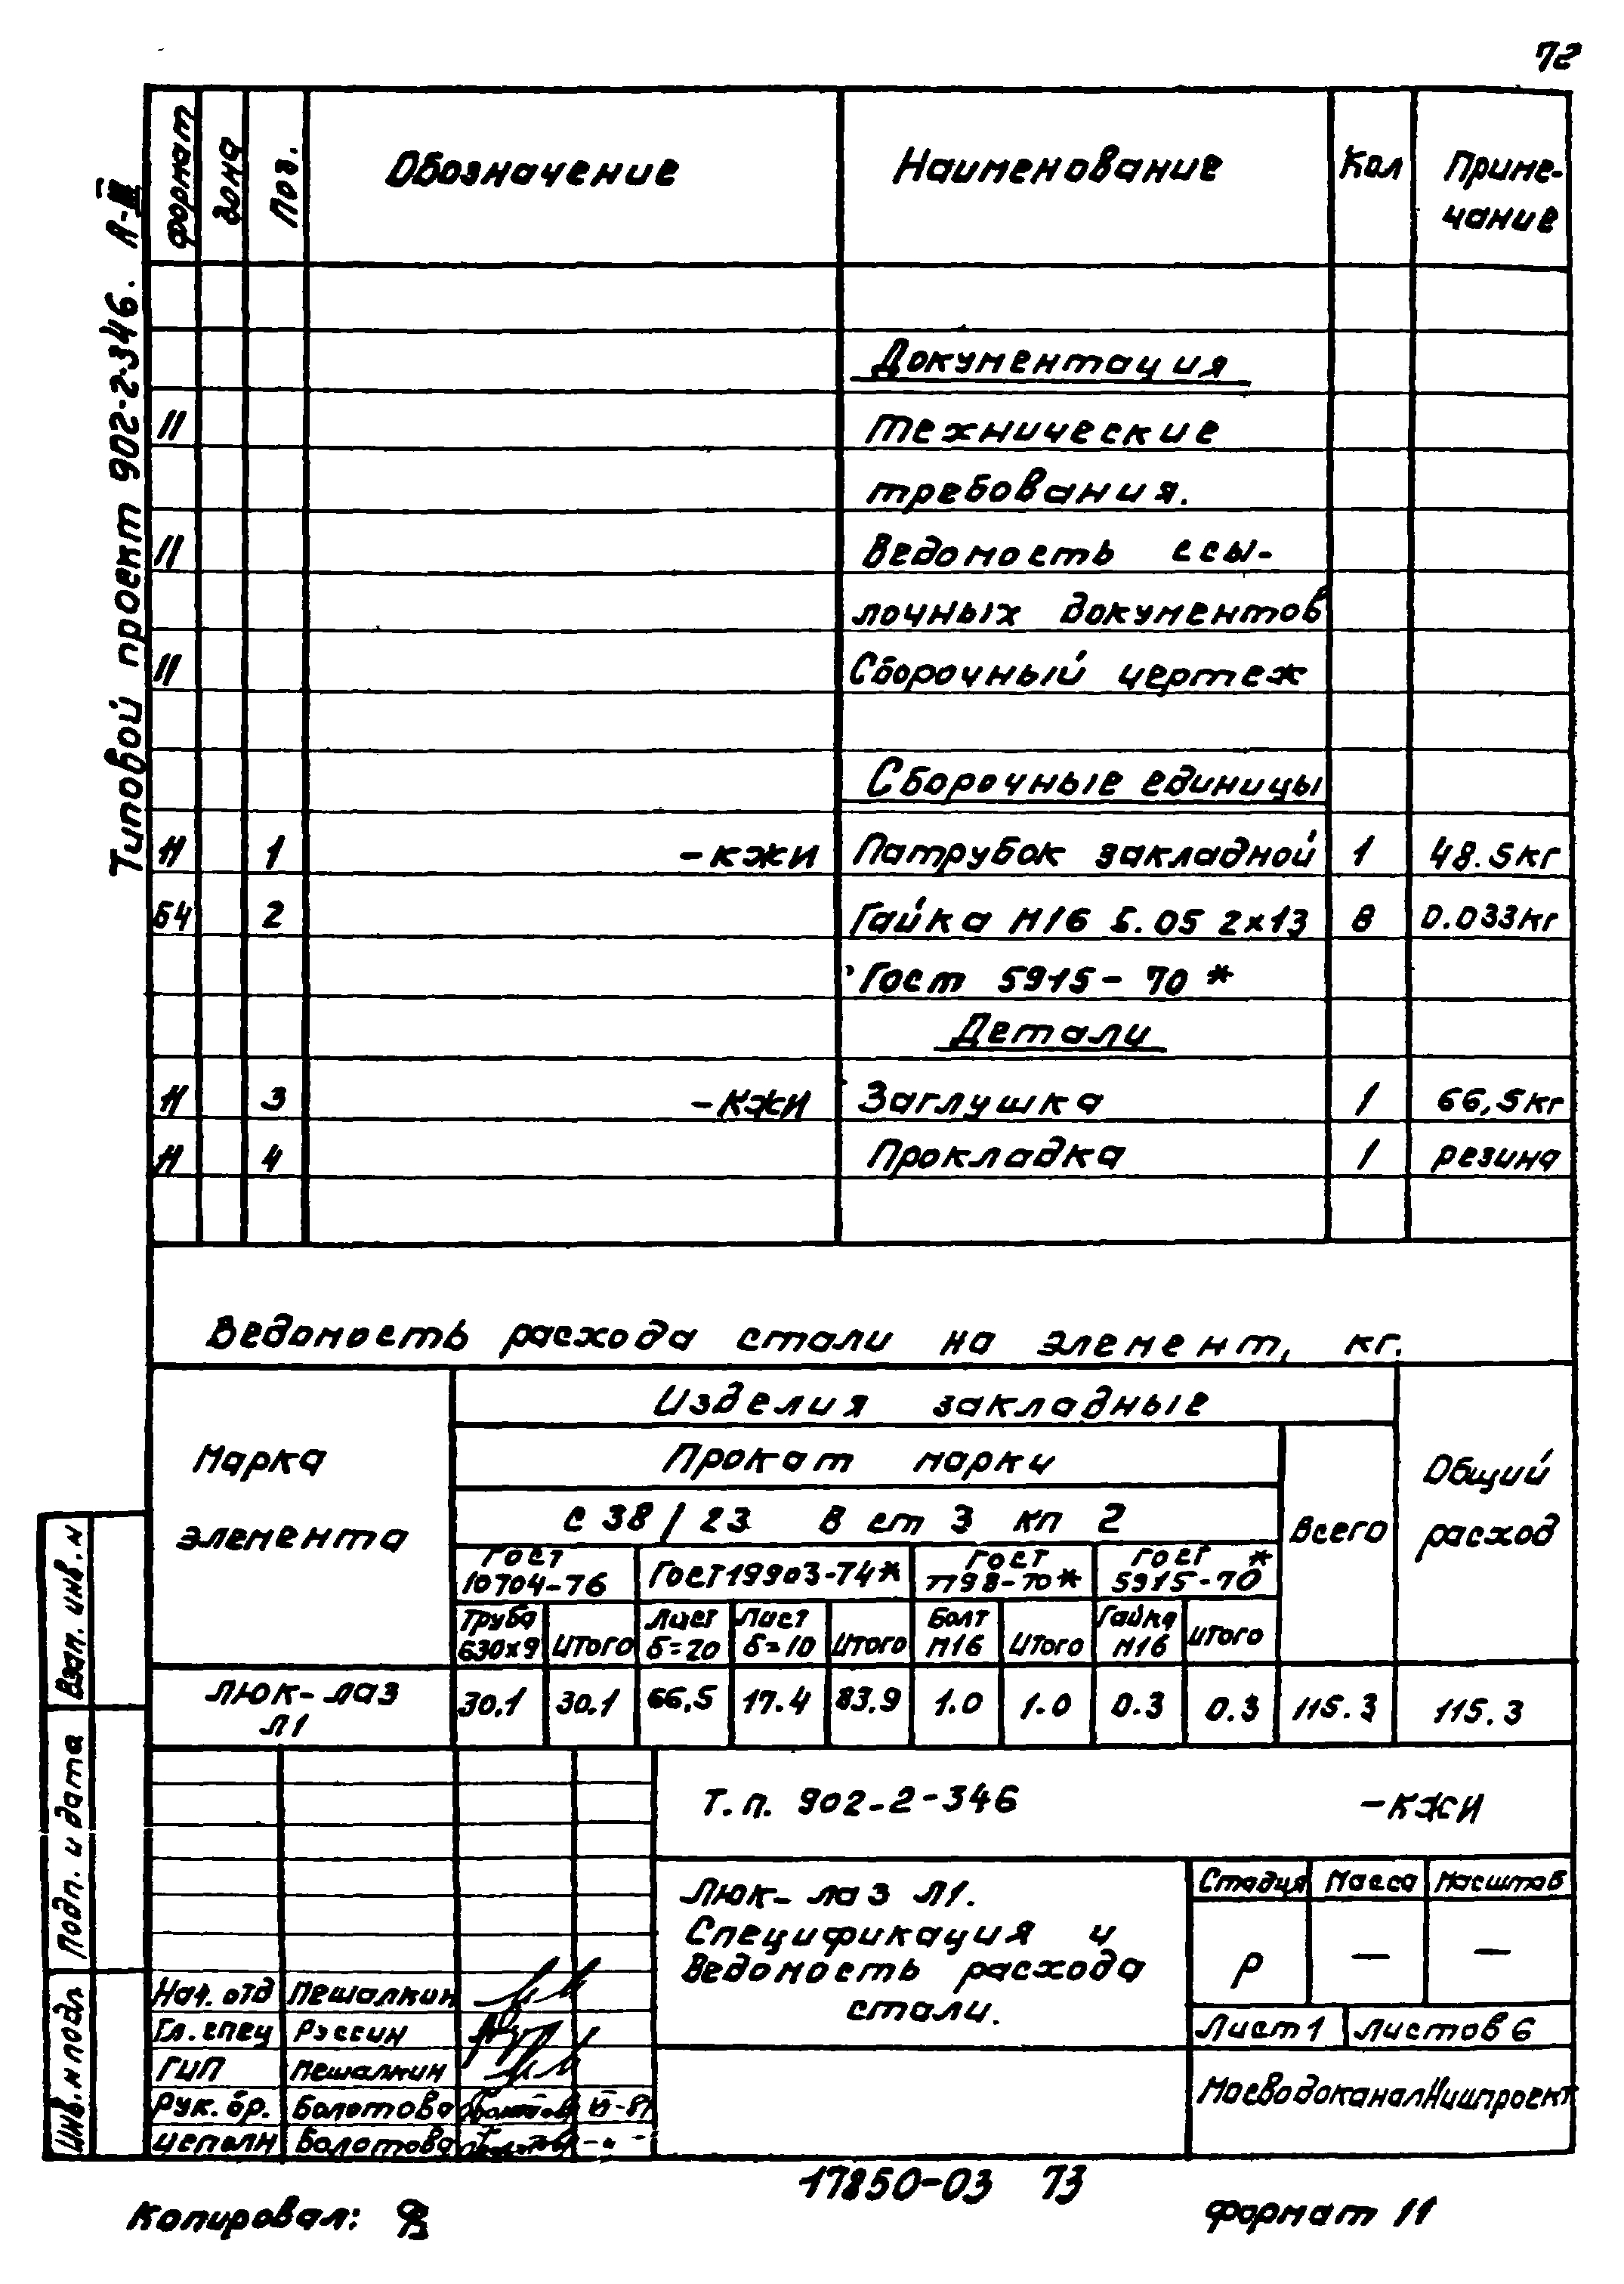 72
Типовой проект 902-2-346. А-III
Формат Зона Поз. Обозначение Наименование Кол Приме-
чание
Документация
11 Технические
требования.
11 Ведомость ссы-
лочных документов
11 Сборочный чертеж
Сборочные единицы
11 1 -КЖИ Патрубок закладной 1 48.5кг
БЧ 2 Гайка М16 5.05 2х13 8 0.033кг
Гост 5915-70*
Детали
11 3 -КЖИ Заглушка 1 66,5кг
11 4 Прокладка 1 резина
Ведомость расхода стали на элемент, кг.
Марка
элемента
Изделия закладные
Прокат марки
С 38/23 В ст 3 кп 2
Всего
Общий
расход
Гост
10704-76
Гост 19903-74*
Гост
7798-70*
Гост
5915-70*
Труба
630х9
Итого
Лист
б=20
Лист
б=10
Итого
Болт
М16
Итого
Гайка
М16
Итого
Люк-лаз
Л1
30.1 30.1 66,5 17.4 83.9 1.0 1.0 0.3 0.3 115.3 115.3
Т.п. 902-2-346 -КЖИ
Люк-лаз Л1.
Спецификация и
Ведомость расхода
стали.
Стадия Масса Масштаб
Р — —
Лист 1 Листов 6
МосводоканалНиипроект
Нач. отд Пешалкин
Гл. спец Рэссин
ГИП Пешалкин
Рук. бр. Болотова
исполн Болотова
Взам. инв. н
Подп. и дата
Инв. н подл
17850-03 73
Копировал:
Формат 11